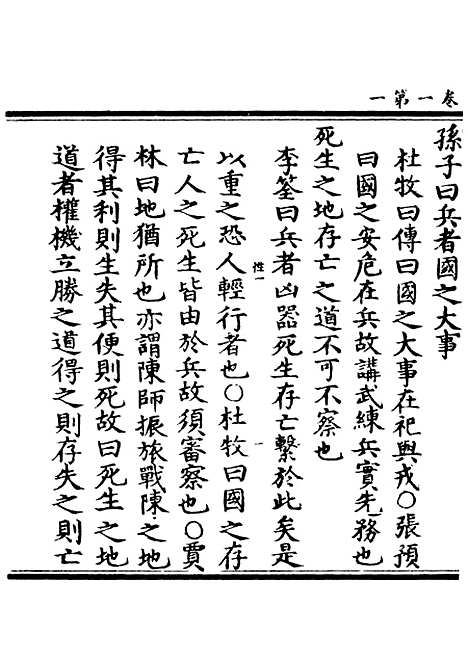 卷一第一
孫子曰兵者國之大事
杜牧曰傳曰國之大事在祀與戎〇張預
曰國之安危在兵故講武練兵實先務也
死生之地存亡之道不可不察也
李筌曰兵者凶器死生存亡繫於此矣是
以重之恐人輕行者也〇杜牧曰國之存
亡人之死生皆由於兵故須審察也〇賈
林曰地猶所也亦謂陳師振旅戰陳之地
得其利則生失其便則死故曰死生之地
道者權機立勝之道得之則存失之則亡
性一
一